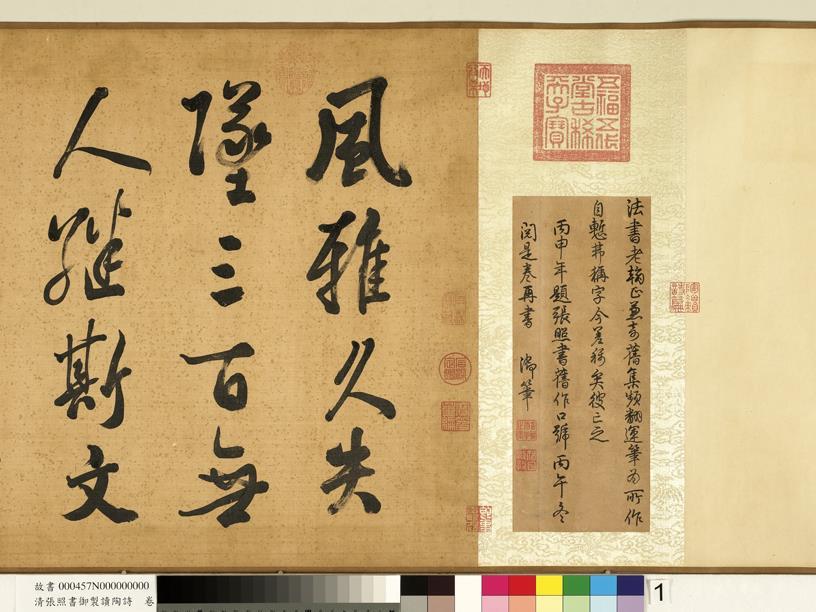 五福五代
堂古稀
天子寶
法書老翰正兼奇舊集頻翻運筆為所作
自慙苐稱字今差稱矣彼已之
丙申年題張照書舊作口號丙午冬
閱是卷再書 御筆
風雅久失
墜三百無
人継斯文
故書 000457N000000000
清張照書御製讀陶詩 卷
1